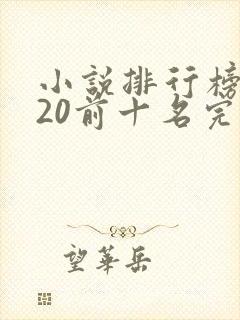 小説排行榜
20前十名完
望華岳